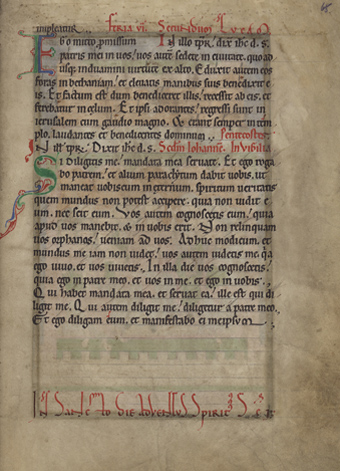 impleatur. feria vi. Secundum Lucam
Ego mitto pmissum In illo tpr. dix ihc d. s.
patris mei in vos; vos aute sedete in civitate, quo ad
usq; induamini virtute ex alto. Eduxit autem eos
foras in bethaniam, et elevatis manibus suis benedixit e
is. Et factum est dum benediceret illis, recessit ab eis, et
ferebatur in celum. Et ipsi adorantes, regressi sunt in
ierusalem cum gaudio magno. Et erant semper in tem
plo, laudantes et benedicentes dominum. Pentecostes
In ill tpr. Dixit ihc d. s. Scdm Iohanne. In vigilia
Si diligitis me, mandata mea servate. Et ego roga
bo patrem, et alium paraclytum dabit vobis, ut
maneat vobiscum in eternum, spiritum veritatis
quem mundus non potest accipere, quia non vidit e
um, nec scit eum. Vos autem cognoscetis eum, quia
apud vos manebit, & in vobis erit. Non relinquam
vos orphanos, veniam ad vos. Adhuc modicum, et
mundus me iam non videt, vos autem videtis me, qa
ego vivo, et vos vivetis. In illa die vos cognoscetis,
quia ego in patre meo, et vos in me, et ego in vobis.
Qui habet mandata mea, et servat ea, ille est qui di
ligit me. Qui autem diligit me, diligetur a patre meo.
Et ego diligam eum, et manifestabo ei meipsum.
In Sancto die adventus Spirit